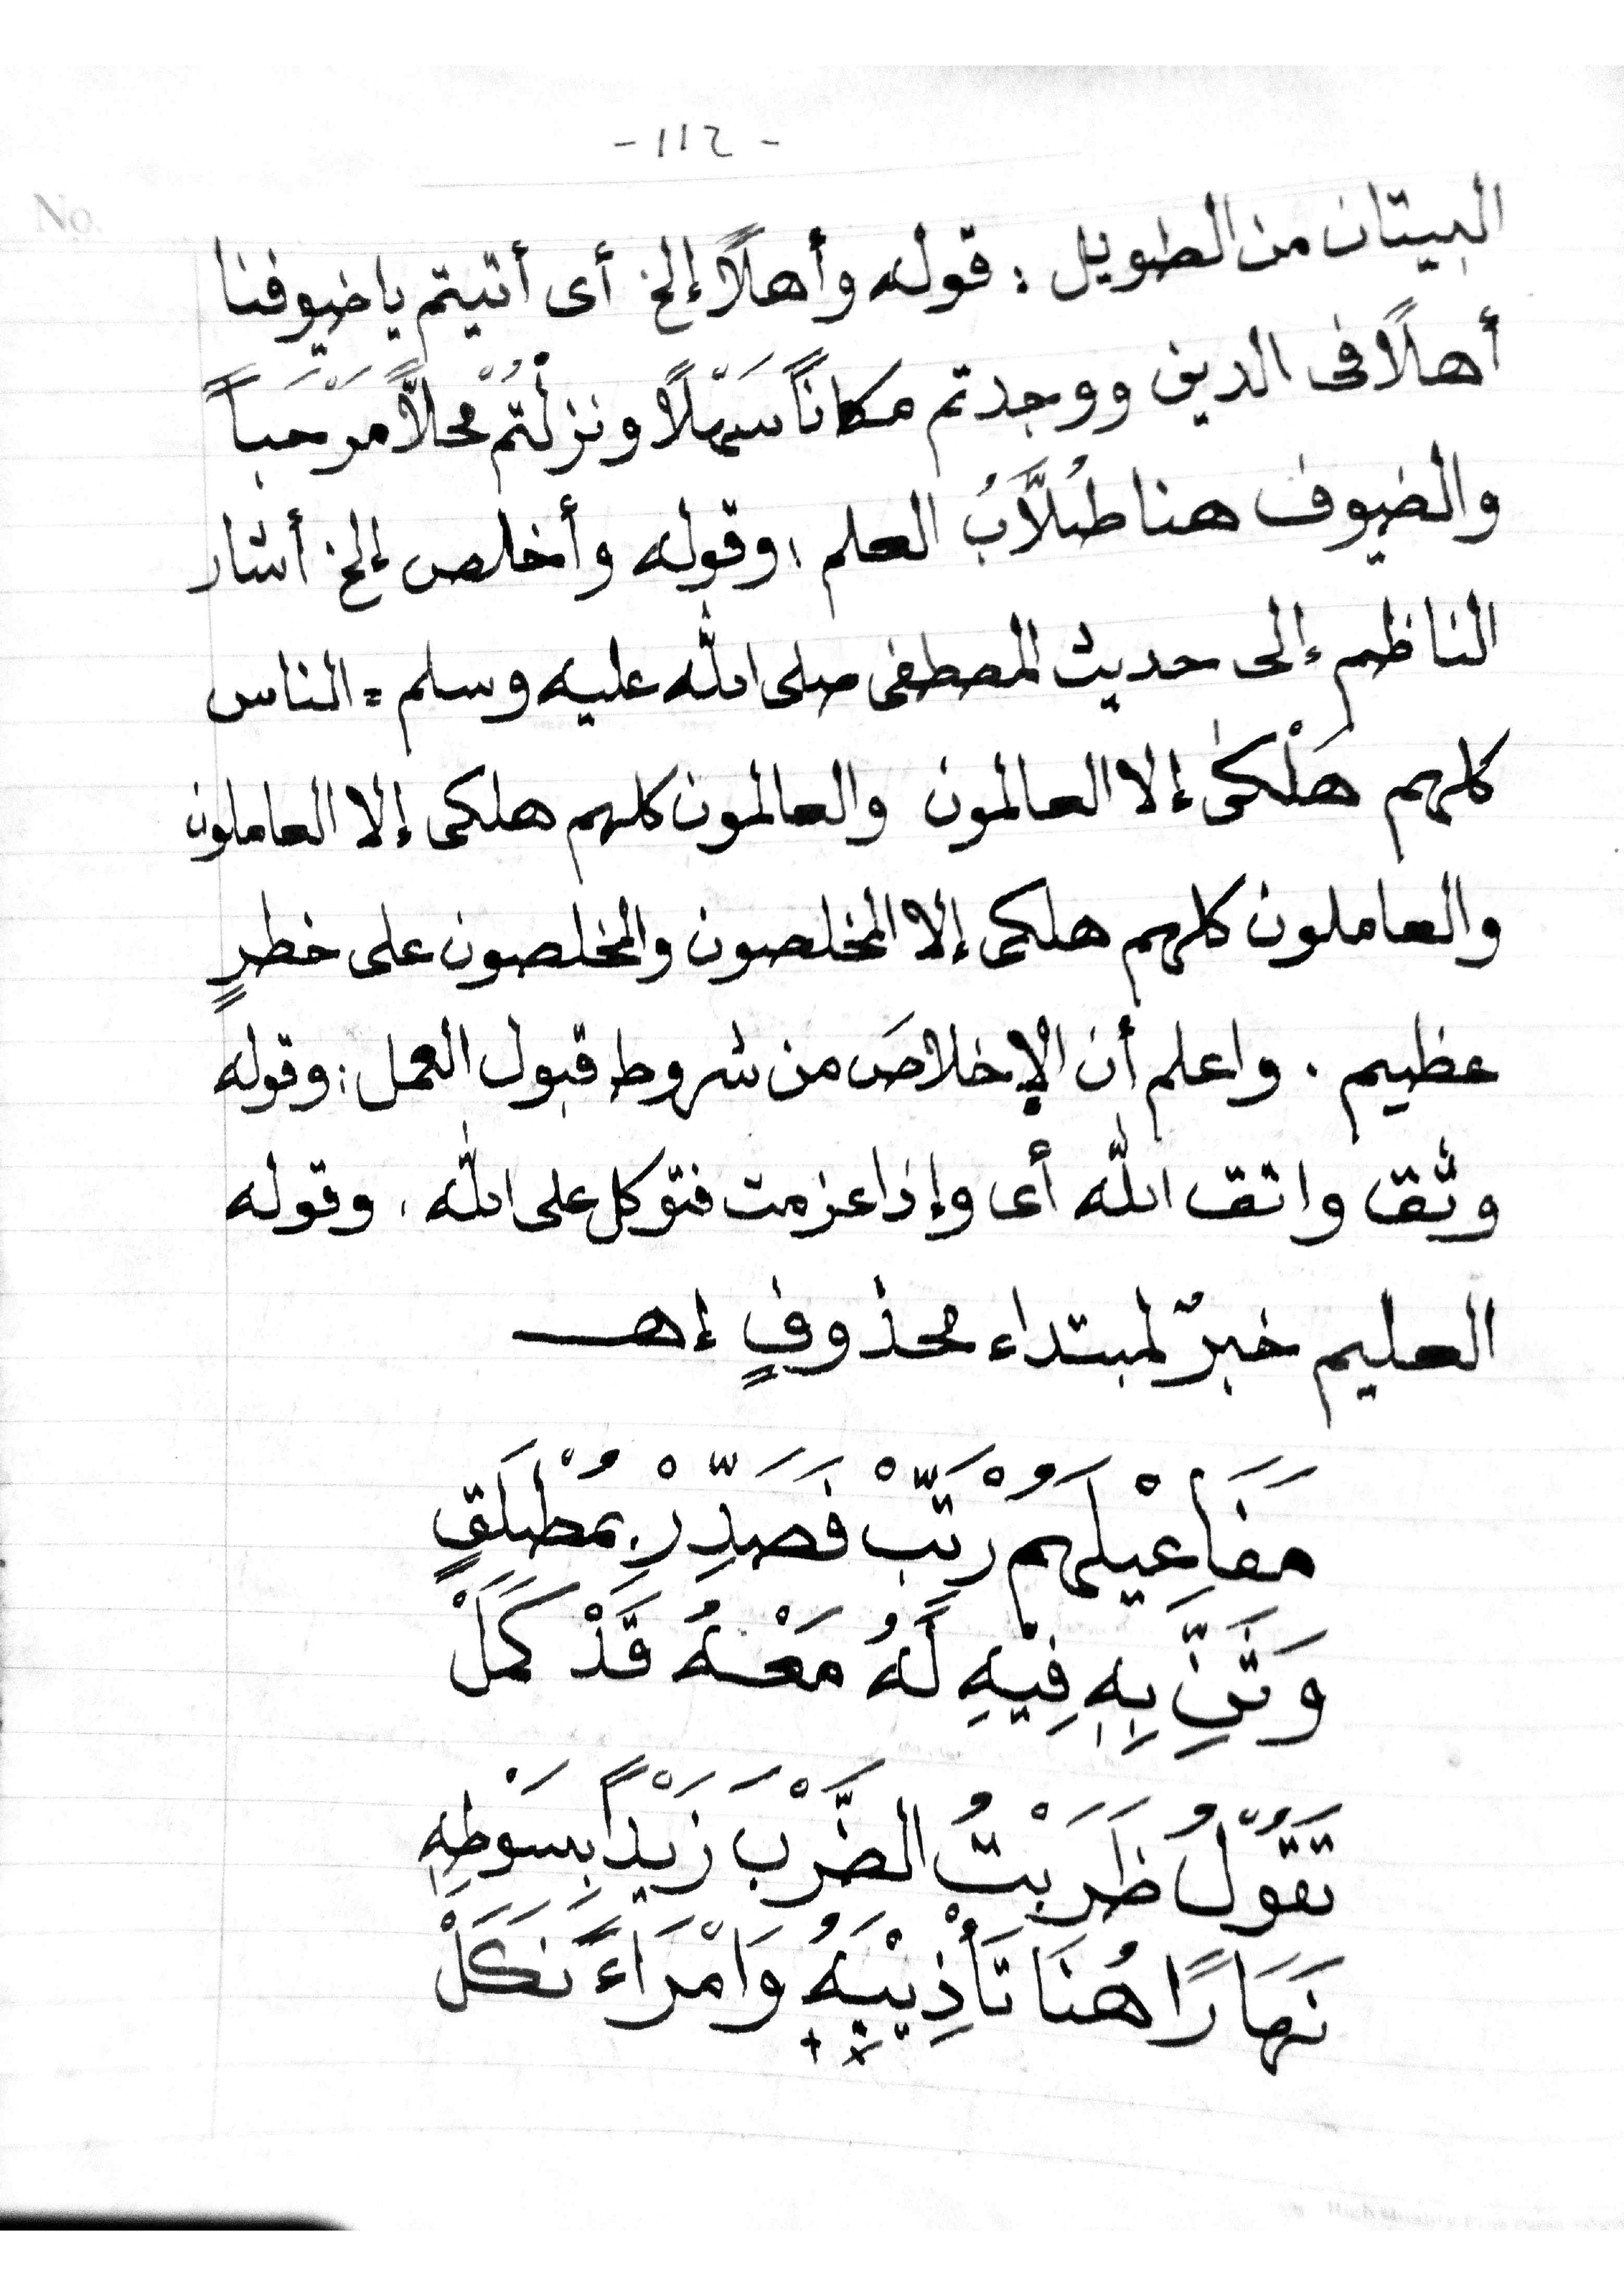 - 211 -
No.
البيتان من الطويل : قوله وأهلاً إلخ أى أتيتم ياضيوفنا
أهلاً فى الدين ووجدتم مكاناً سَهْلاً ونزلْتُمْ محلاًّ مَرْحَباً
والضيوف هنا طُلاَّبُ العلم ، وقوله وأخلص إلخ أشار
الناظم إلى حديث المصطفى صلى الله عليه وسلم = الناس
كلهم هَلْكىٰ إلا العالمون والعالمون كلهم هلكى إلا العاملون
والعاملون كلهم هلكى إلا المخلصون والمخلصون على خطرٍ
عظيم . واعلم أن الإخلاصَ من شروط قبول العمل : وقوله
وثق واتق الله أى وإذا عزمت فتوكل على الله ، وقوله
العليم خبرٌ لمبتداء محذوفٍ إهـ
مَفَاعِيْلَهُمْ رَتِّبْ فَصَدِّرْ بِمُطْلَقٍ
وَثَنِّ بِهِ فِيْهِ لَهُ مَعْهُ قَدْ كَمَلْ
تَقُوْلُ ظَرَبْتُ الضَّرْبَ زَيْداً بِسَوْطِهِ
نَهَارًا هُنَا تَأْذِيْبَهُ وَامْرَاءً نَكَلْ